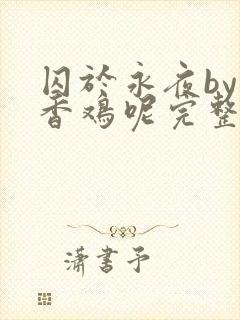 囚於永夜by
香鸡呢完整
潇书予